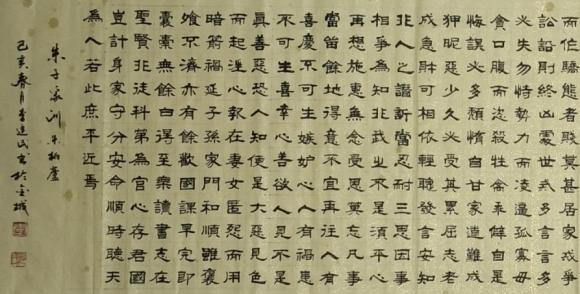 而作驕態者賤莫甚居家戒爭
訟訟則終凶處世戒多言言多
必失勿恃勢力而凌逼孤寡毋
貪口腹而恣殺牲禽乖僻自是
悔誤必多頹惰自甘家道難成
狎昵惡少久必受其累屈志老
成急則可相依輕聽發言安知
非人之譖訴當忍耐三思因事
相爭焉知非我之不是須平心
再想施惠無念受恩莫忘凡事
當留餘地得意不宜再往人有
喜慶不可生嫉妒心人有禍患
不可生喜幸心善欲人見不是
真善惡恐人知便是大惡見色
而起淫心報在妻女匿怨而用
暗箭禍延子孫家門和順雖饔
飧不濟亦有餘歡國課早完即
囊橐無餘自得至樂讀書志在
聖賢非徒科第為官心存君國
豈計身家守分安命順時聽天
為人若此庶乎近焉
朱子家訓 朱柏廬
己亥春月李書於金城